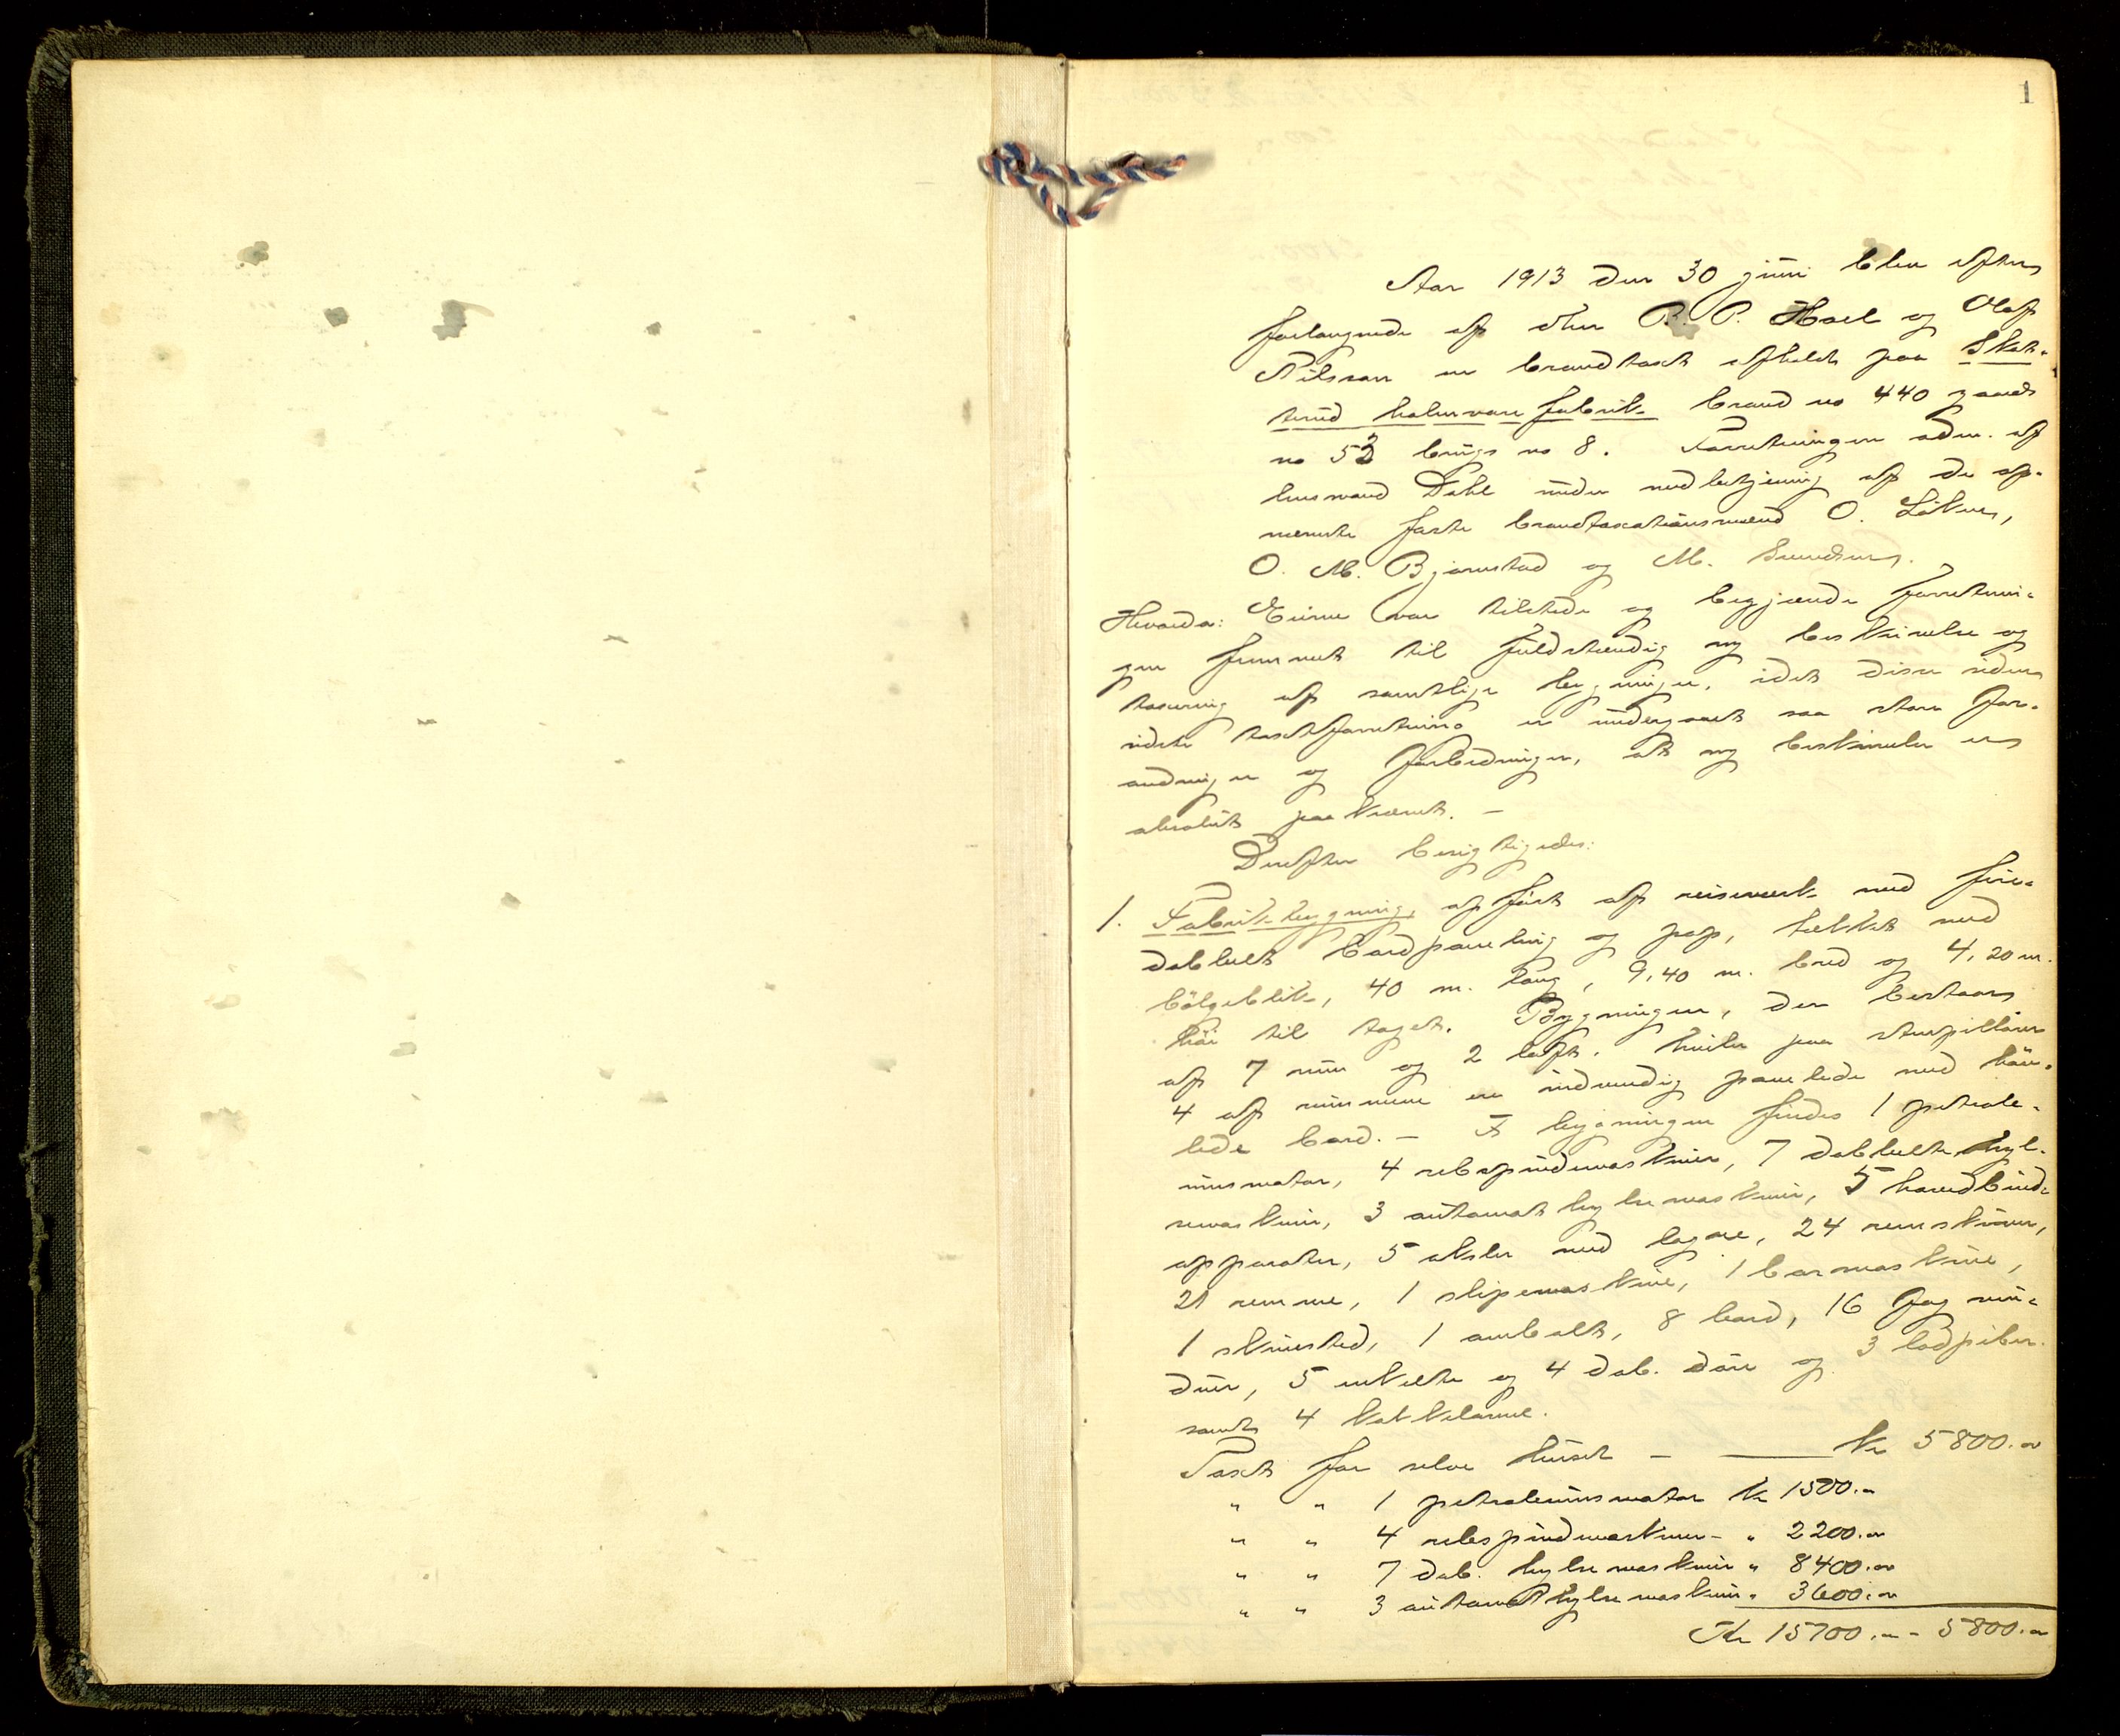 1
Aar 1913 den 30 juni blev efter
forlangende af dhrr B. P. Hoel og Olaf
Nilsson en brandtaxt afholdt paa Skat-
terud halmvarefabrik brand no 440 gaards
no 53 brugs no 8. Forretningen adm. af
lensmand Dahl under medbetjening af de op-
nævnte faste brandtaxationsmænd O. Løkner,
O. M. Bjørnstad og M. Svendsen.
Eierne var tilstede og begjærede forretnin-
gen fremmet til fuldstændig ny beskrivelse og
taxering af samtlige bygninger, idet disse siden
sidste taxtforretning er undergaaet saa store for-
andringer og forbedringer, at ny beskrivelse er
absolut paakrævet. -
Derefter besigtigedes:
1. Fabrikbygning, opført af reisverk med fire-
dobbelt bordpaneling og pap, tækket med
bølgeblik, 40 m. lang, 9,40 m. bred og 4,20 m.
høi til taget. Bygningen, der bestaar
af 7 rum og 2 loft. hviler paa stenpillarer
4 af rummene er indvendig panelede med høv-
lede bord. - I bygningen findes 1 petrole-
umsmotor, 4 rebspindemaskiner, 7 dobbelte hyl-
semaskiner, 3 automat hylsemaskiner, 5 haandbind-
apparater, 5 aksler med lagre, 24 remskiver,
21 remme, 1 slipemaskine, 1 bormaskine,
1 skruested, 1 ambolt, 8 bord, 16 fag vin-
duer, 5 enkelte og 4 dob. døre og 3 lodpiber
samt 4 kakkelovne.
Taxt for selve huset - — kr 5800.00
" " 1 petroleumsmotor kr 1500.00
" " 4 rebspindmaskiner - " 2200.00
" " 7 dob. hylsemaskiner " 8400.00
" " 3 automathylsemaskiner " 3600.00
Kr 15700.00 - 5800.00